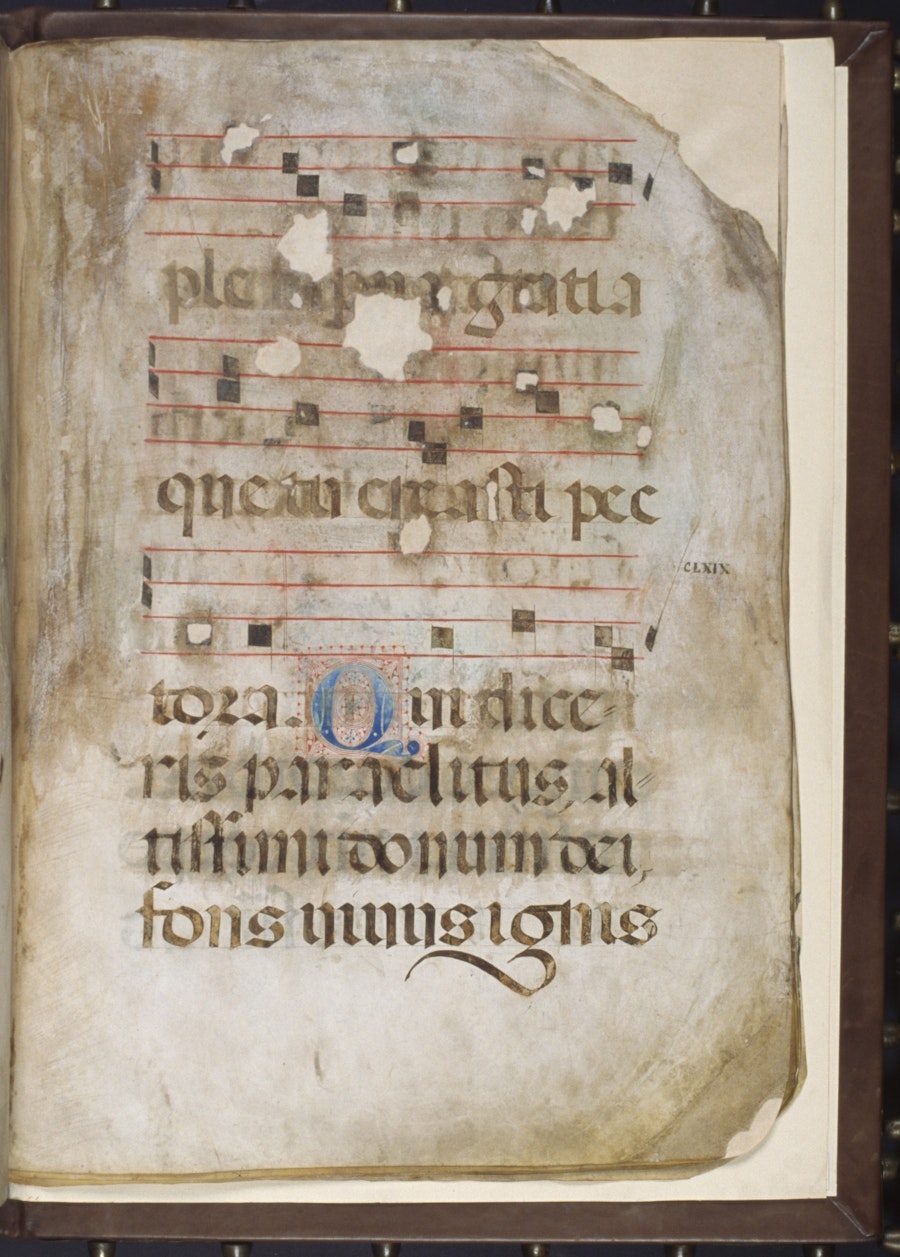 ple perna gratia
que tu creasti pec
CLXIX
tora. Qui dice=
ris paraclitus, al=
tissimi donum dei,
fons uiuus ignis